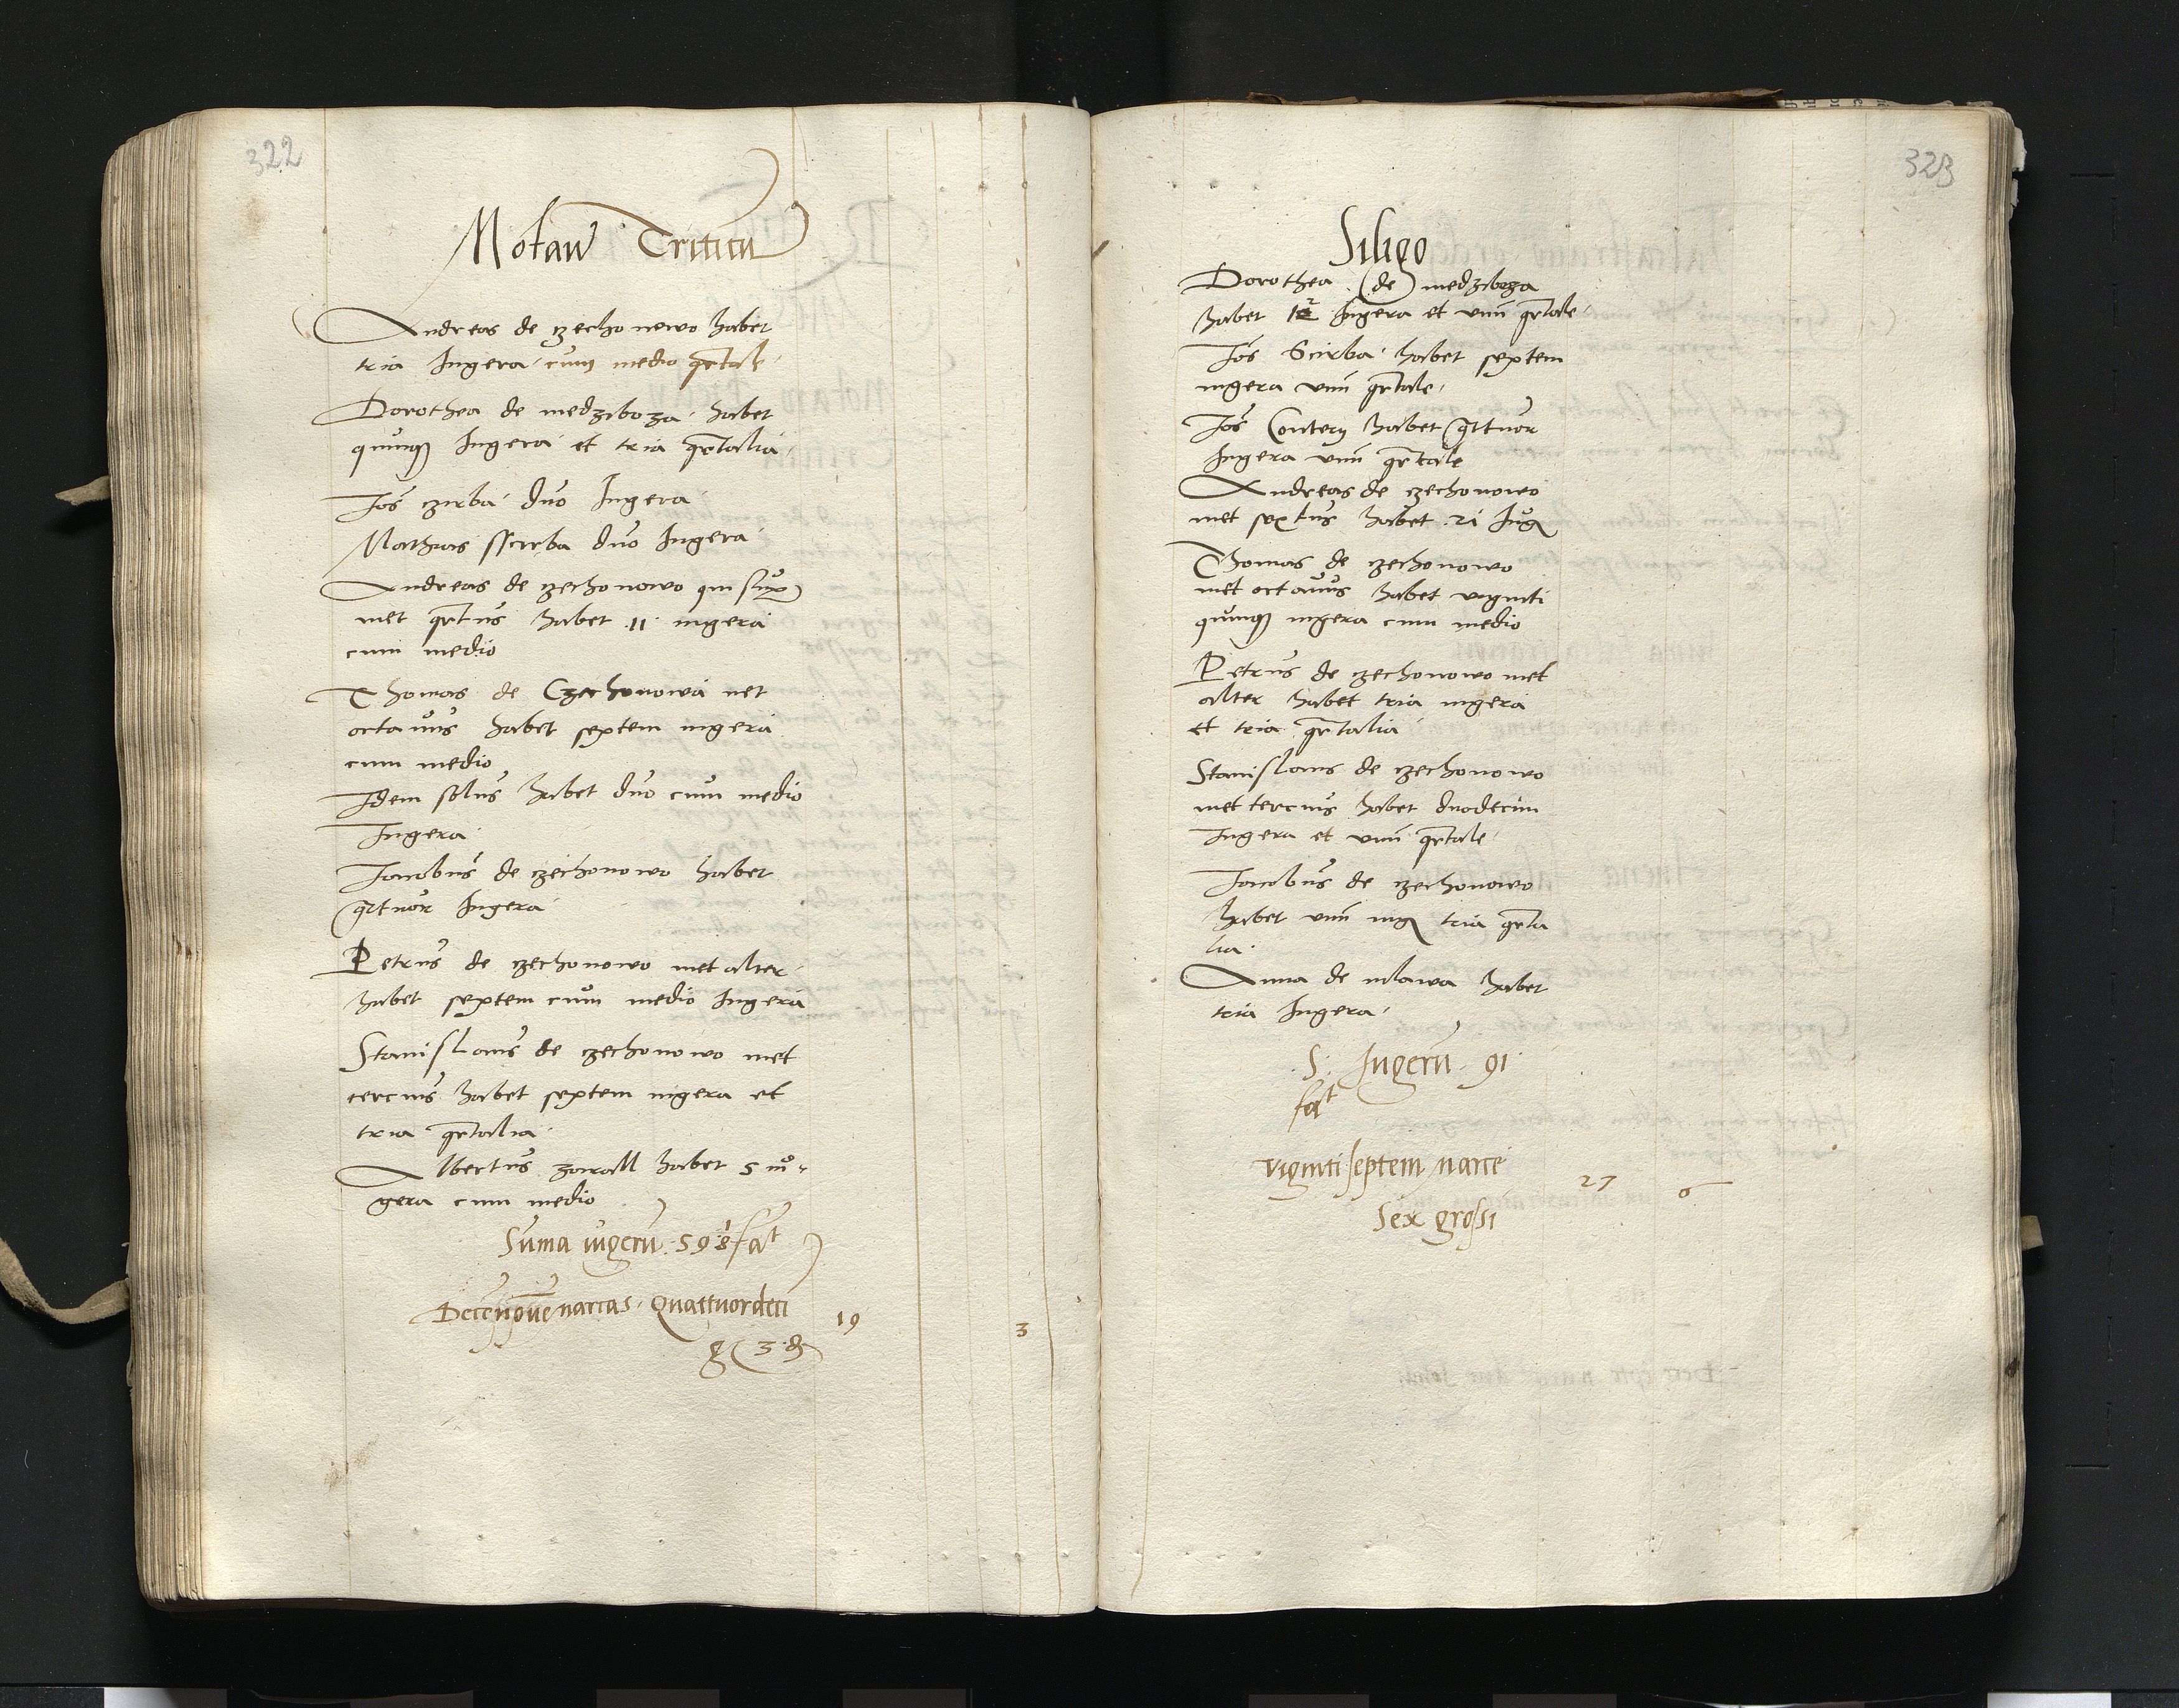 322
Motaw Triticu
Andreas de czechonewo habet
tria Iugera cum medio qrtale
Dorothea de medziboza habet
quinqz Iugera et tria qrtalia
Jos czirba duo Iugera
Mathias sscirba duo Iugera
Andreas de czechonowo
met qrtus habet 11 iugera
cum medio
Thomas de Czechonowa met
octavus habet septem iugera
cum medio
Idem solus habet duo cum medio
Iugera
Jacobus de czechonowo habet
qttuor Iugera
Petrus de czechonowo met alter
habet septem cum medio Iugera
Stanislaus de czechonowo met
tercius habet septem iugera et
tria qrtalia
Albertus zawall habet 5 iu
gera cum medio
Suma iugeru 59 fat
Decenove marcas Quattuordeci 19 3
g 3
323
Siligo
Dorothea de medziboza
habet Iugera et unu qrtale
Jos Scirba habet septem
iugera unu qrtale
Jos habet qttuor
Iugera unu qrtale
Andreas de czechonowo
met sextus habet 21 Iug
Thomas de czechonowo
met octavus habet viginti
quinqz iugera cum medio
Petrus de czechonowo met
alter habet tria iugera
et tria qrtalia
Stanislaus de czechonowo
met tercius habet duodecim
Iugera et unu qrtale
Jacobus de czechonowo
habet unu iug tria qrta
lia
Anna de mlawa habet
tria Iugera
S. Iugeru 91
fat
viginti septem marce 27 6
Sex grossi